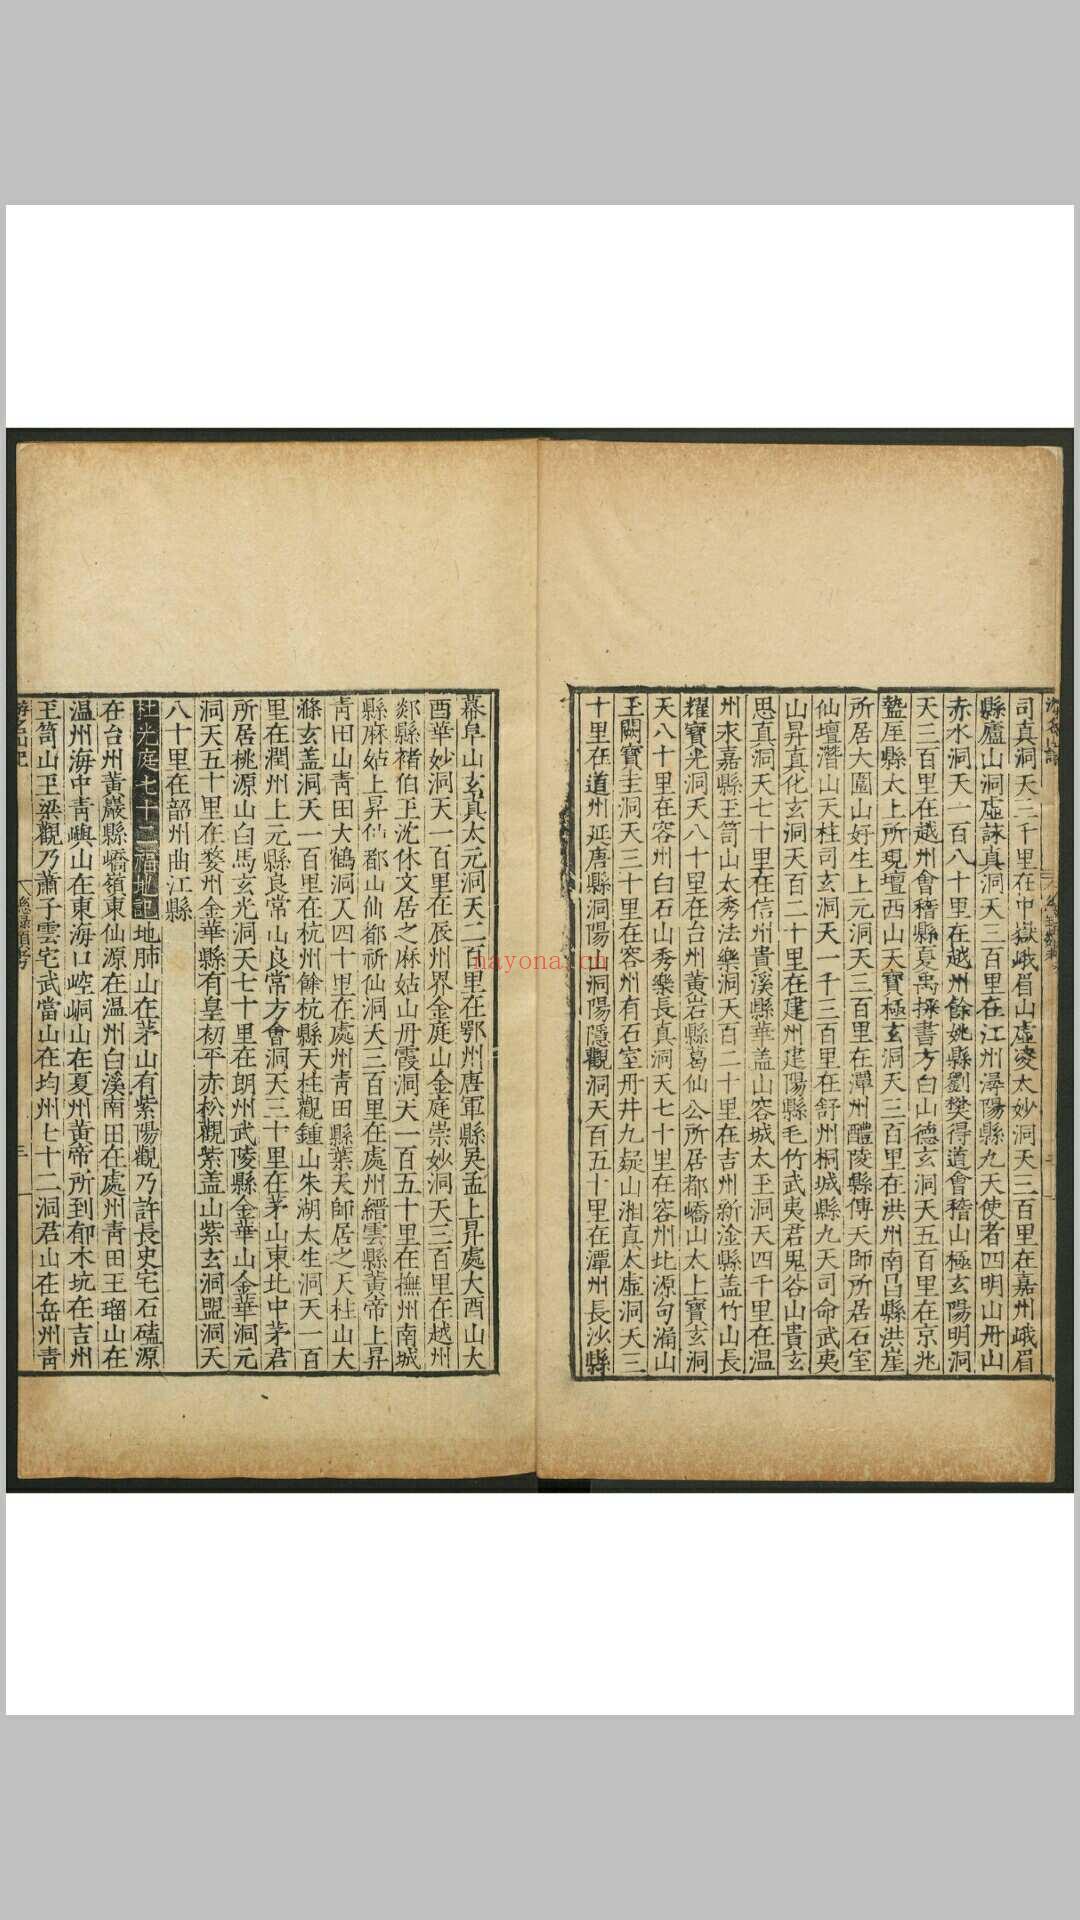 司真洞天三千里在中嶽峨眉山虛凌太妙洞天三百里在嘉州峨眉
縣廬山洞虛詠真洞天三百里在江州潯陽縣九天使者四明山丹山
赤水洞天一百八十里在越州餘姚縣劉樊得道會稽山極玄陽明洞
天三百里在越州會稽縣夏禹探書方白山德玄洞天五百里在京兆
盩厔縣太上所現壇西山天寶極玄洞天三百里在洪州南昌縣洪崖
所居大圍山好生上元洞天三百里在潭州醴陵縣傳天師所居石室
仙壇潛山天柱司玄洞天一千三百里在舒州桐城縣九天司命武夷
山昇真化玄洞天百二十里在建州建陽縣毛竹武夷君鬼谷山貴玄
思真洞天七十里在信州貴溪縣華盖山容城太玉洞天四千里在温
州永嘉縣玉笥山太秀法樂洞天百二十里在吉州新淦縣盖竹山長
耀寶光洞天八十里在台州黃岩縣葛仙公所居都嶠山太上寶玄洞
天八十里在容州白石山秀樂長真洞天七十里在容州北源句漏山
玉闕寶圭洞天三十里在容州有石室丹井九疑山湘真太虛洞天三
十里在道州延唐縣洞陽山洞陽隱觀洞天百五十里在潭州長沙縣
幕阜山玄真太元洞天二百里在鄂州唐軍縣吳孟上昇處大酉山大
酉華妙洞天一百里在辰州界金庭山金庭崇妙洞天三百里在越州
剡縣褚伯玉沈休文居之麻姑山丹霞洞天一百五十里在撫州南城
縣麻姑上昇仙都山仙都祈仙洞天三百里在處州縉雲縣黃帝上昇
青田山青田大鶴洞天四十里在處州青田縣葉天師居之天柱山大
滌玄盖洞天一百里在杭州餘杭縣天柱觀鍾山朱湖太生洞天一百
里在潤州上元縣良常山良常方會洞天三十里在茅山東北中茅君
所居桃源山白馬玄光洞天七十里在朗州武陵縣金華山金華洞元
洞天五十里在婺州金華縣有皇初平赤松觀紫盖山紫玄洞盟洞天
八十里在韶州曲江縣
杜光庭七十二福地記地肺山在茅山有紫陽觀乃許長史宅石磕源
在台州黃巖縣嶠嶺東仙源在温州白溪南田在處州青田玉瑠山在
温州海中青嶼山在東海口崆峒山在夏州黃帝所到郁木坑在吉州
玉笥山玉梁觀乃蕭子雲宅武當山在均州七十二洞君山在岳州青
三
nayona.cn